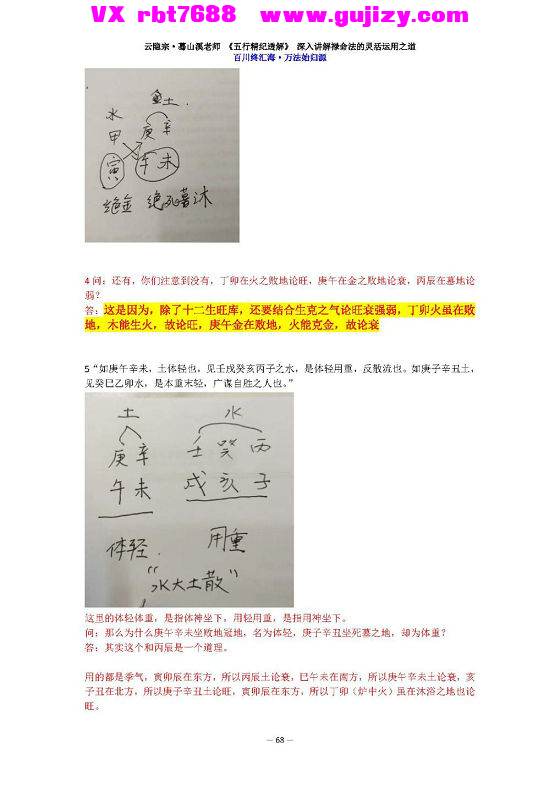 VX rbt7688 www.gujizy.com
云隐宗·蓦山溪老师 《五行精纪透解》 深入讲解禄命法的灵活运用之道
百川终汇海·万法始归源
土
水
甲 庚 辛
寅 午 未
绝金 绝死墓沐
4 问：还有，你们注意到没有，丁卯在火之败地论旺，庚午在金之败地论衰，丙辰在墓地论
弱？
答：这是因为，除了十二生旺库，还要结合生克之气论旺衰强弱，丁卯火虽在败
地，木能生火，故论旺，庚午金在败地，火能克金，故论衰
5 “如庚午辛未，土体轻也，见壬戌癸亥丙子之水，是体轻用重，反散流也。如庚子辛丑土，
见癸巳乙卯水，是本重末轻，广谋自胜之人也。”
土 水
庚 辛 壬 癸 丙
午 未 戌 亥 子
体轻. 用重
“水大土散”
这里的体轻体重，是指体神坐下，用轻用重，是指用神坐下。
问：那么为什么庚午辛未坐败地冠地，名为体轻，庚子辛丑坐死墓之地，却为体重？
答：其实这个和丙辰是一个道理。
用的都是季气，寅卯辰在东方，所以丙辰土论衰，巳午未在南方，所以庚午辛未土论衰，亥
子丑在北方，所以庚子辛丑土论旺，寅卯辰在东方，所以丁卯（炉中火）虽在沐浴之地也论
旺。
— 68 —